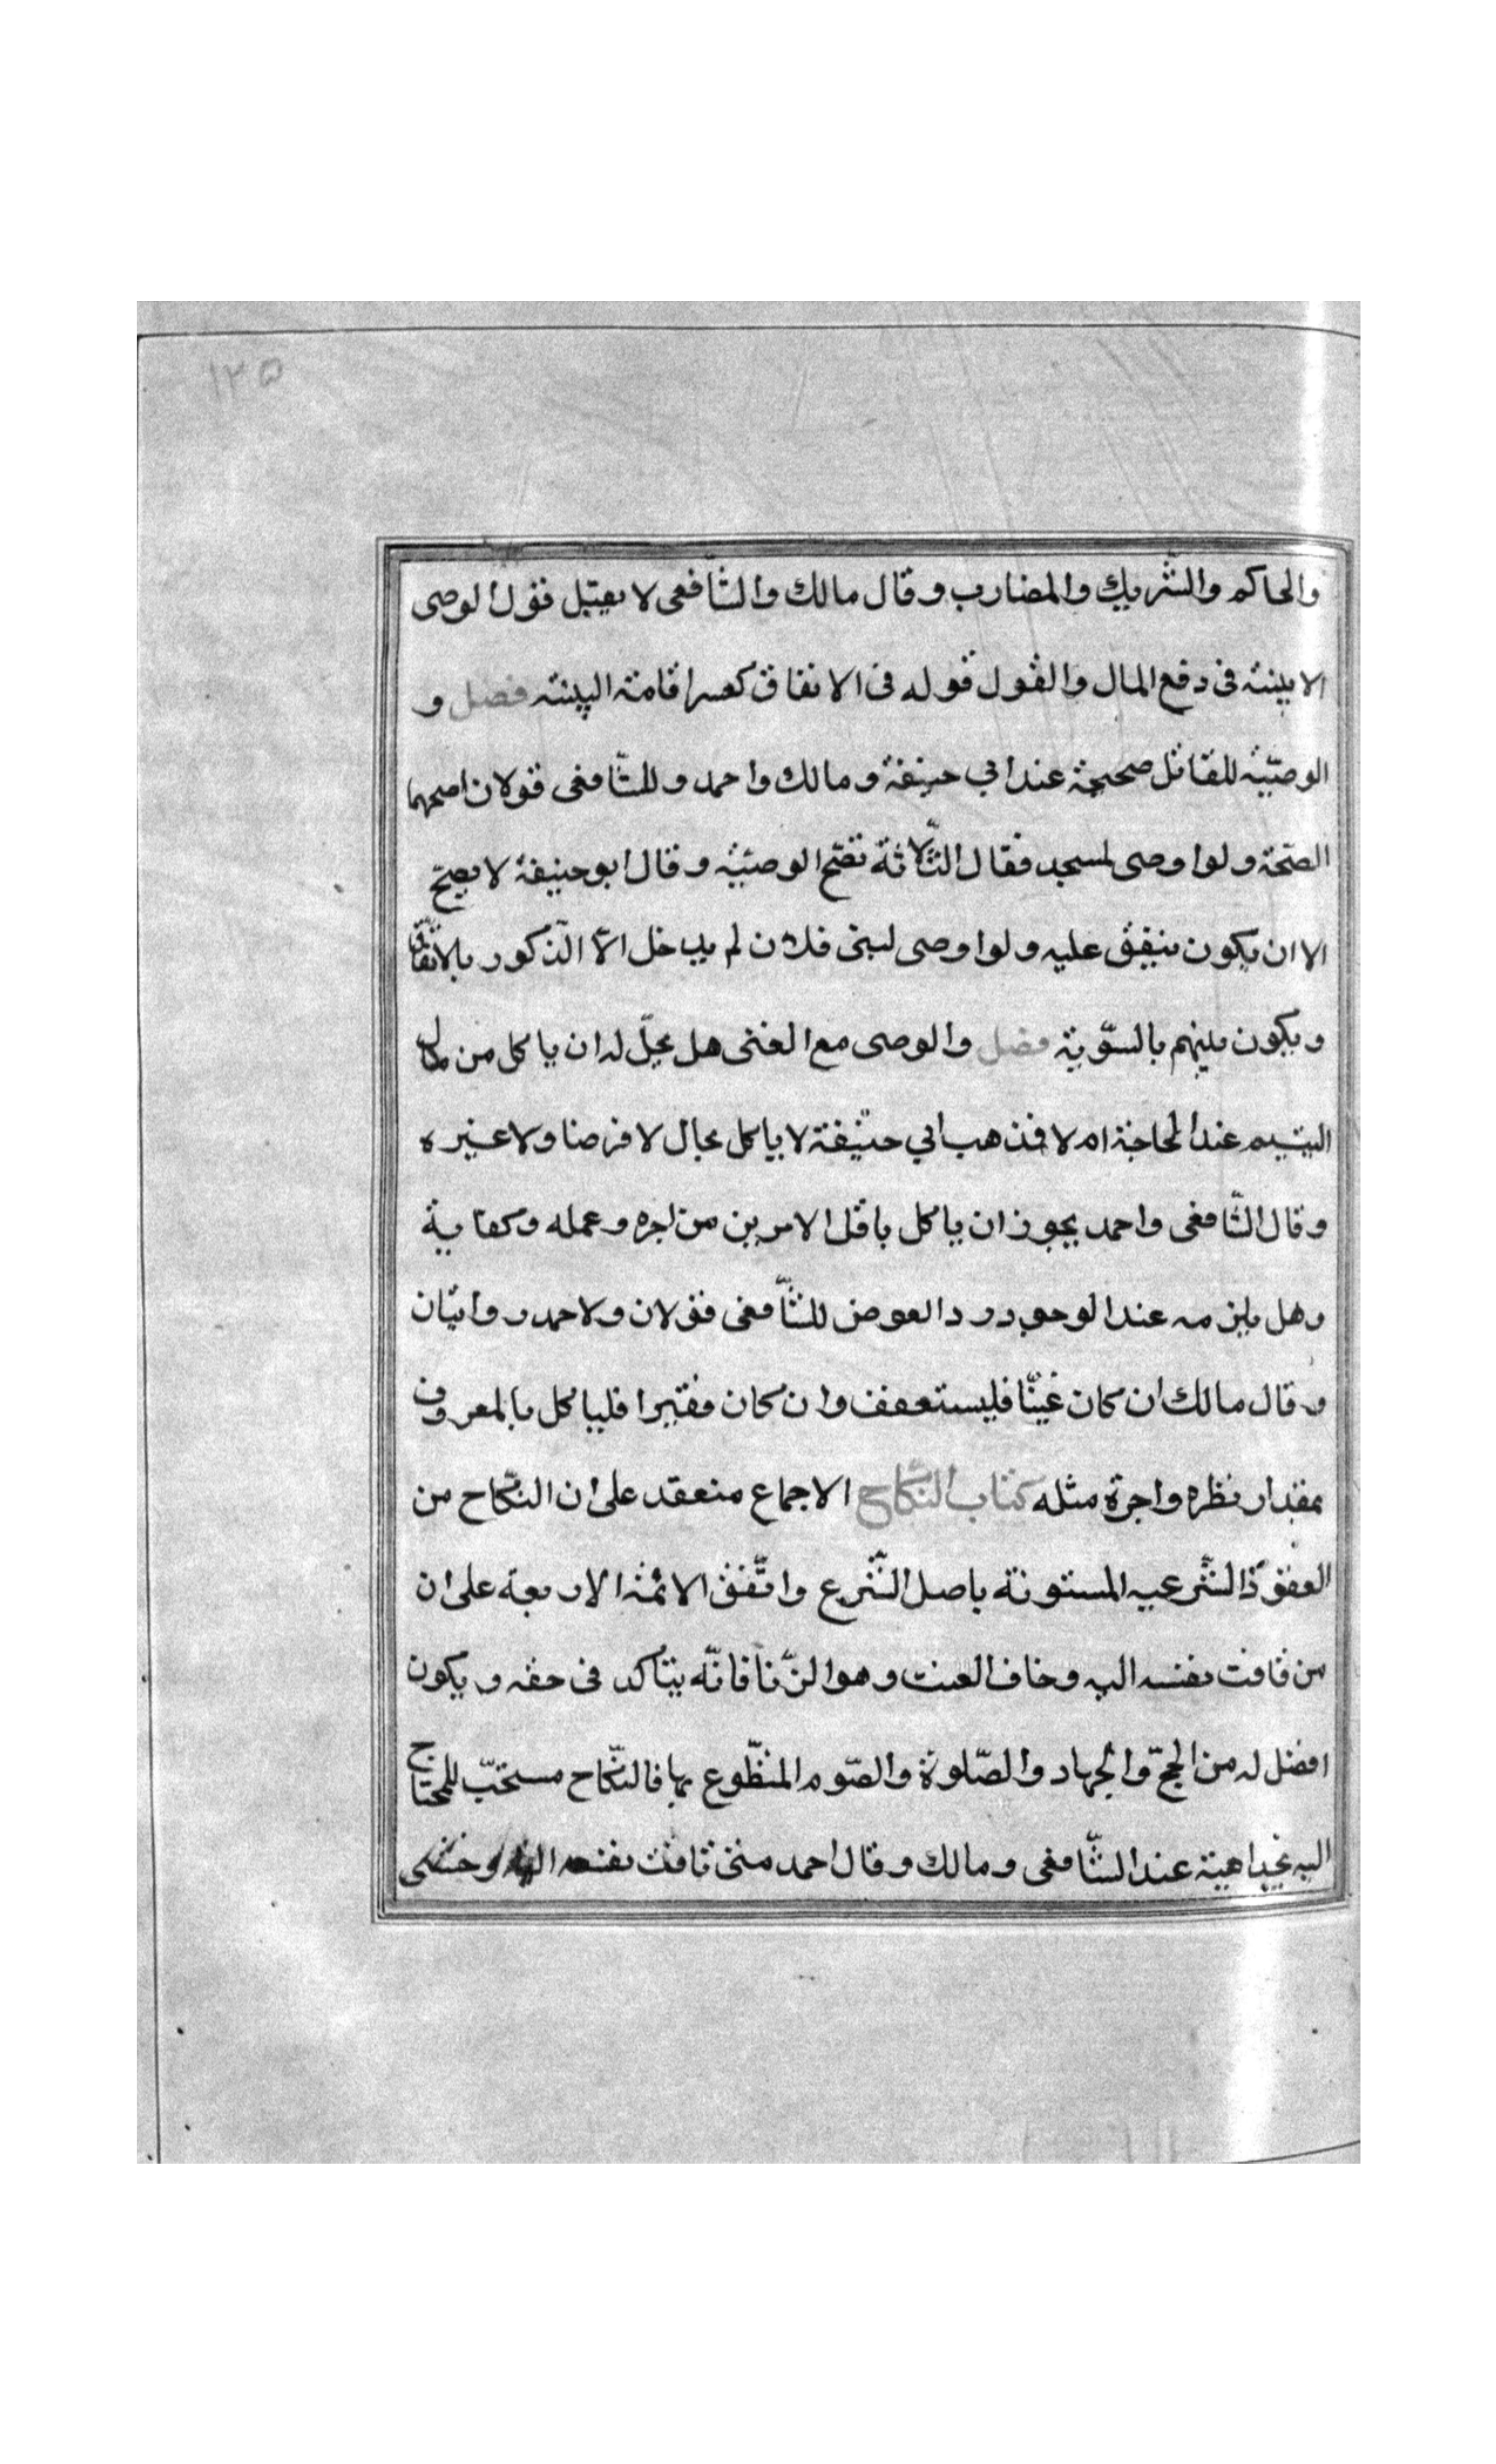 ١٢٥
والحاكم والشّريك والمضارب وقال مالك والشّافعى لا يقبل قول الوصى
الا ببينة فى دفع المال والقول قوله فى الانفاق كعسر اقامة البينة فصل و
الوصيّة للقاتل صحيحة عند ابي حنيفة ومالك واحمد وللشّافعى قولان اصحهما
الصّحة ولو اوصى لمسجد فقال الثّلاثة تصّح الوصيّة وقال ابو حنيفة لا يصحّ
الا ان يكون ينفق عليه ولو اوصى لبنى فلان لم يدخل الاّ الذّكور بالاتّفاق
ويكون بينهم بالسّوية فصل والوصى مع الغنى هل يحلّ له ان ياكل من مال
اليتيم عند الحاجة ام لا فذهب ابي حنيفة لا ياكل بحال لا قرضا ولا غيره
وقال الشّافعى واحمد يجوز ان ياكل باقل الامرين من اجره وعمله وكفاية
وهل يلزمه عند الوجود رد العوض للشّافعى قولان ولاحمد روايتان
وقال مالك ان كان غنيّا فليستعفف وان كان فقيرا فلياكل بالمعروف
بمقدار نظره واجرة مثله كتاب النّكاح الاجماع منعقد على ان النّكاح من
العقود الشّرعيه المسنونة باصل الشّرع واتّفق الائمة الاربعة على ان
من تاقت نفسه اليه وخاف العنت وهو الزّنا فانّه يتاكد فى حقه ويكون
افضل له من الحجّ والجهاد والصّلوة والصّوم المتطّوع بها فالنّكاح مستحّب للمحتاج
اليه عند الشّافعى ومالك وقال احمد متى تاقت نفسه اليه وخشى